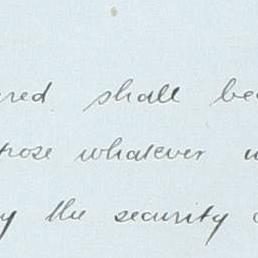 red shall be
pose whatever
y the security